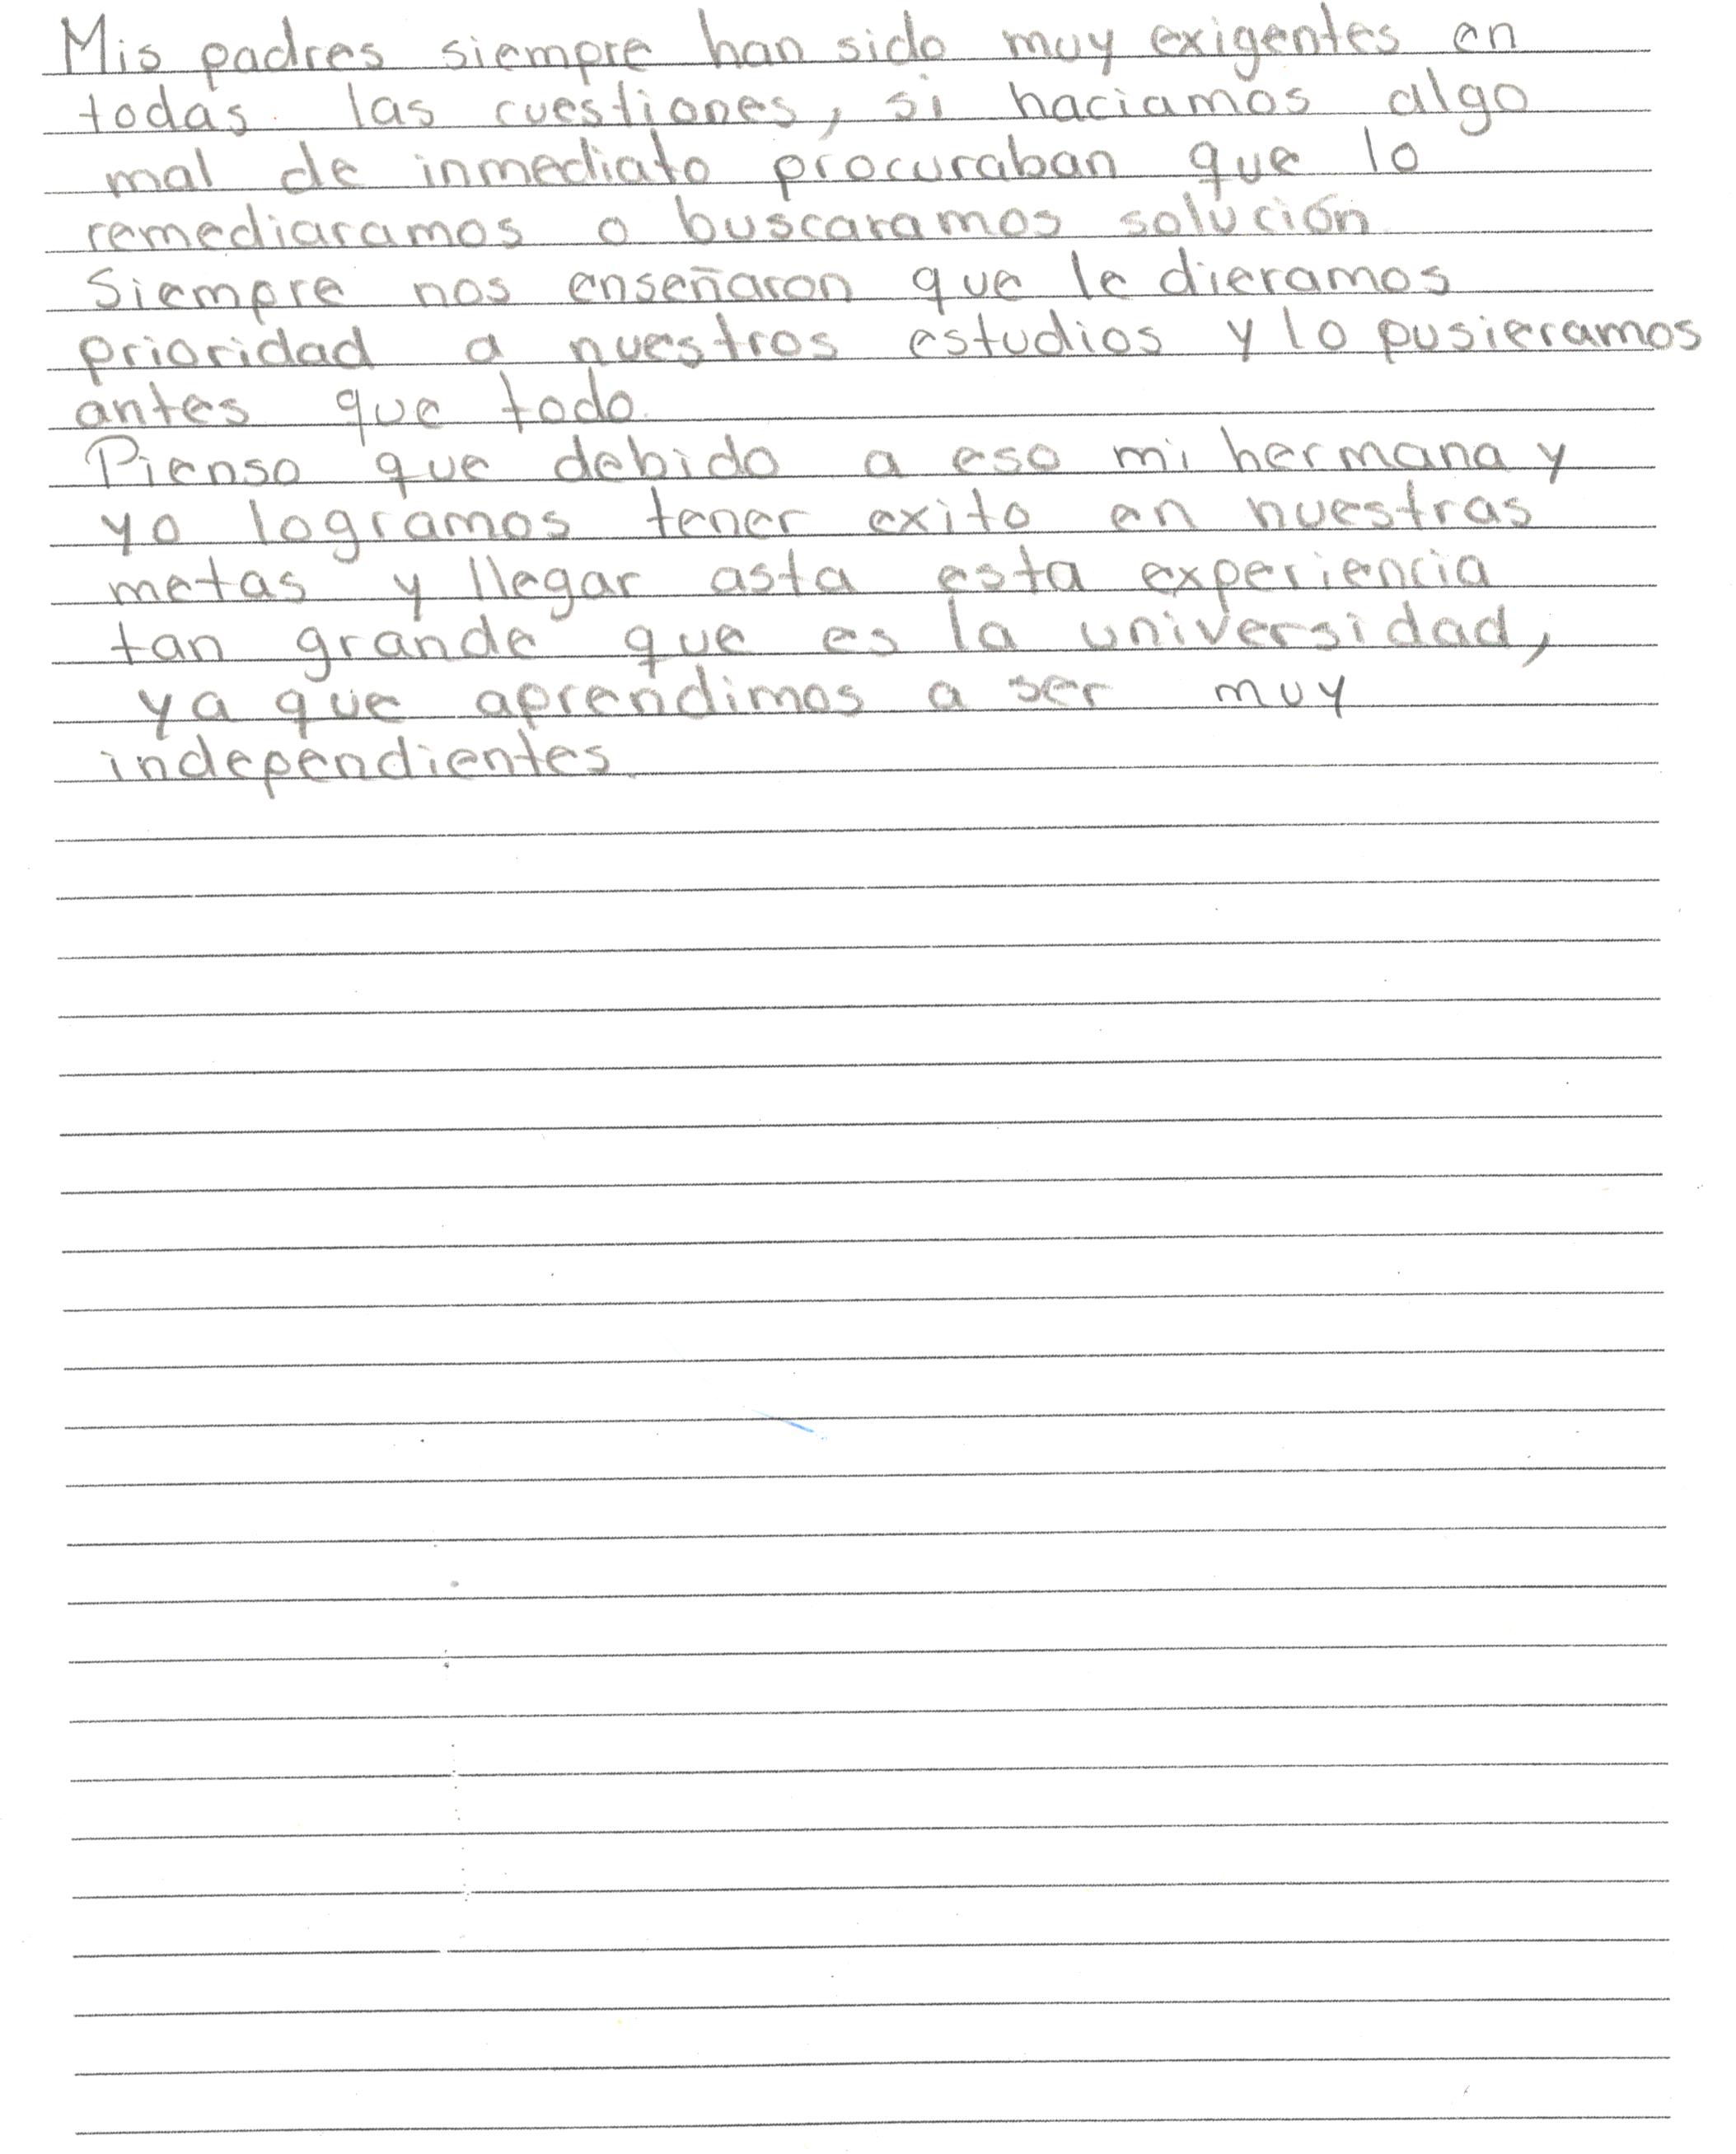 Mis padres siempre han sido muy exigentes en
todas las cuestiones, si haciamos algo
mal de inmediato procuraban que lo
remediaramos o buscaramos solución.
Siempre nos enseñaron que le dieramos
prioridad a nuestros estudios y lo pusieramos
antes que todo.
Pienso que debido a eso mi hermana y
yo logramos tener exito en nuestras
metas y llegar asta esta experiencia
tan grande que es la universidad,
ya que aprendimos a ser muy
independientes.